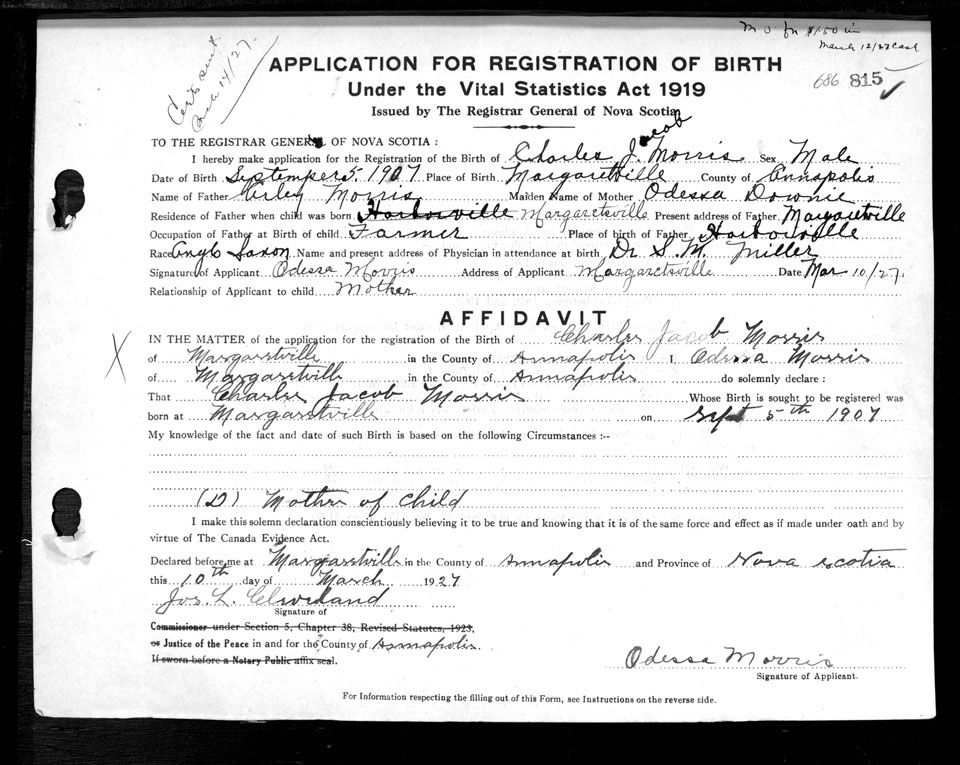 M.O. for $1.50 in
March 12/27 Cash
Cert sent
Mch 14/27.
APPLICATION FOR REGISTRATION OF BIRTH
686 815
Under the Vital Statistics Act 1919
Issued by The Registrar General of Nova Scotia
TO THE REGISTRAR GENERAL OF NOVA SCOTIA :
I hereby make application for the Registration of the Birth of Charles Jacob Morris Sex Male
Date of Birth Septemper 5. 1907 Place of Birth Margaretville County of Annapolis
Name of Father Morris Maiden Name of Mother Odessa Downie
Residence of Father when child was born Harborville Margaretsville Present address of Father Margaretville
Occupation of Father at Birth of child Farmer Place of birth of Father Harborville
Race Anglo Saxon Name and present address of Physician in attendance at birth Dr. S. M. Miller
Signature of Applicant Odessa Morris Address of Applicant Margaretsville Date Mar 10/27.
Relationship of Applicant to child Mother
AFFIDAVIT
X
IN THE MATTER of the application for the registration of the Birth of Charles Jacob Morris
of Margaretville in the County of Annapolis I, Odessa Morris
of Margaretville in the County of Annapolis do solemnly declare :
That Charles Jacob Morris Whose Birth is sought to be registered was
born at Margaretville on Sept 5th 1907
My knowledge of the fact and date of such Birth is based on the following Circumstances :--
(D) Mother of child
I make this solemn declaration conscientiously believing it to be true and knowing that it is of the same force and effect as if made under oath and by
virtue of The Canada Evidence Act.
Declared before me at Margaretville in the County of Annapolis and Province of Nova Scotia
this 10th day of March 1927
Jos. L. Cleveland
Signature of
Commissioner under Section 5, Chapter 38, Revised Statutes, 1923,
or Justice of the Peace in and for the County of Annapolis.
If sworn before a Notary Public affix seal.
Odessa Morris
Signature of Applicant.
For Information respecting the filling out of this Form, see Instructions on the reverse side.